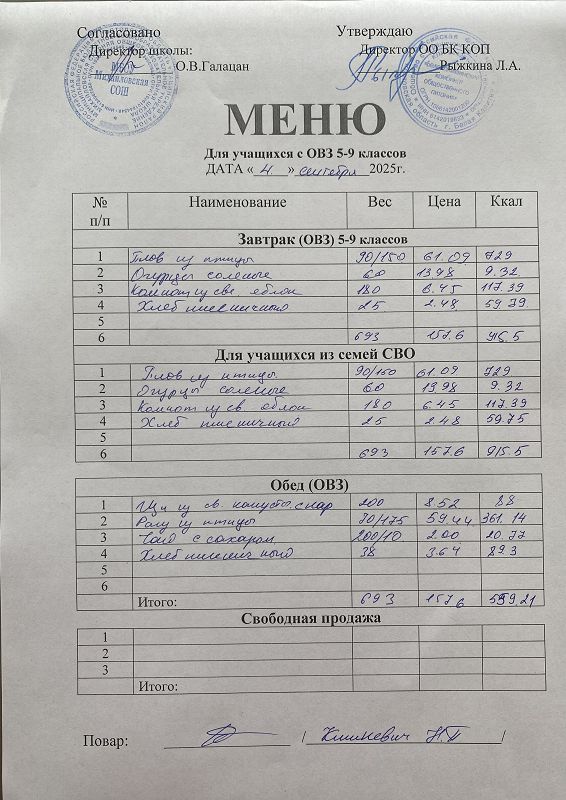 Согласовано Утверждаю
Директор школы: Директор ОО БК КОП
О.В.Галацан Рыжкина Л.А.
Михайловская
СОШ
МЕНЮ
Для учащихся с ОВЗ 5-9 классов
ДАТА «4» сентября 2025г.
№ п/п Наименование Вес Цена Ккал
Завтрак (ОВЗ) 5-9 классов
1 Плов из птицы 90/150 61.09 729
2 Огурцы соленые 60 13.98 9.32
3 Компот из св. яблок 180 6.45 117.39
4 Хлеб пшеничный 25 2.48 59.79
5
6 693 157.6 915.5
Для учащихся из семей СВО
1 Плов из птицы 90/150 61.09 729
2 Огурцы соленые 60 13.98 9.32
3 Компот из св яблок 180 6.45 117.39
4 Хлеб пшеничный 25 2.48 59.75
5
6 693 157.6 915.5
Обед (ОВЗ)
1 Щи из св. капусты с кар 200 8.52 88
2 Рагу из птицы 70/175 59.44 361.14
3 Чай с сахаром 200/10 2.00 20.77
4 Хлеб пшеничный 38 3.64 89.3
5
6
Итого: 693 157.6 559.21
Свободная продажа
1
2
3
Итого:
Повар: / Климкевич Н.П /